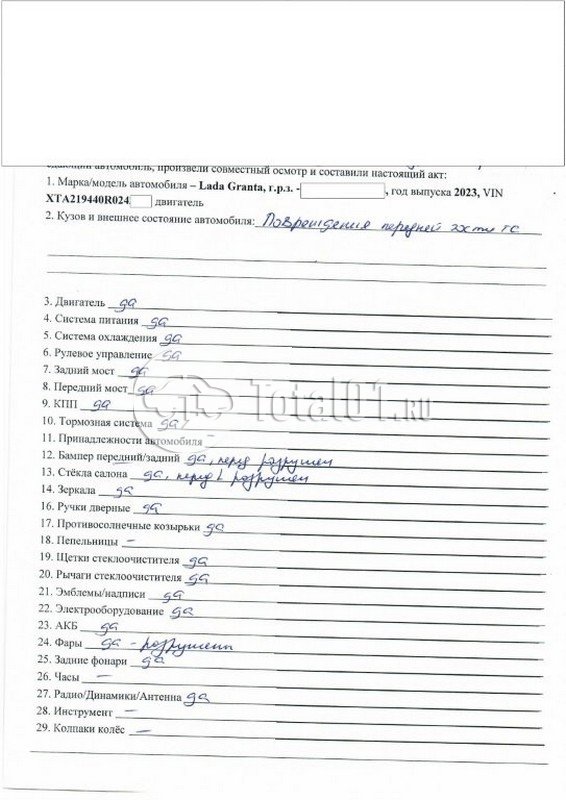 едающий автомобиль, произвели совместный осмотр и составили настоящий акт:
1. Марка/модель автомобиля – Lada Granta, г.р.з. - , год выпуска 2023, VIN
XTA219440R024 двигатель
2. Кузов и внешнее состояние автомобиля: Повреждения передней части ТС
3. Двигатель да
4. Система питания да
5. Система охлаждения да
6. Рулевое управление да
7. Задний мост да
8. Передний мост да
9. КПП да
Total01.RU
10. Тормозная система да
11. Принадлежности автомобиля –
12. Бампер передний/задний да, перед разрушен
13. Стёкла салона да, перед разрушен
14. Зеркала да
16. Ручки дверные да
17. Противосолнечные козырьки да
18. Пепельницы –
19. Щетки стеклоочистителя да
20. Рычаги стеклоочистителя да
21. Эмблемы/надписи да
22. Электрооборудование да
23. АКБ да
24. Фары да - разрушены
25. Задние фонари да
26. Часы –
27. Радио/Динамики/Антенна да
28. Инструмент –
29. Колпаки колёс –